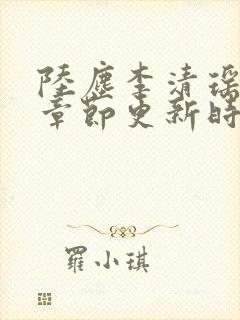 陸塵李清瑶
章節更新時
羅小琪